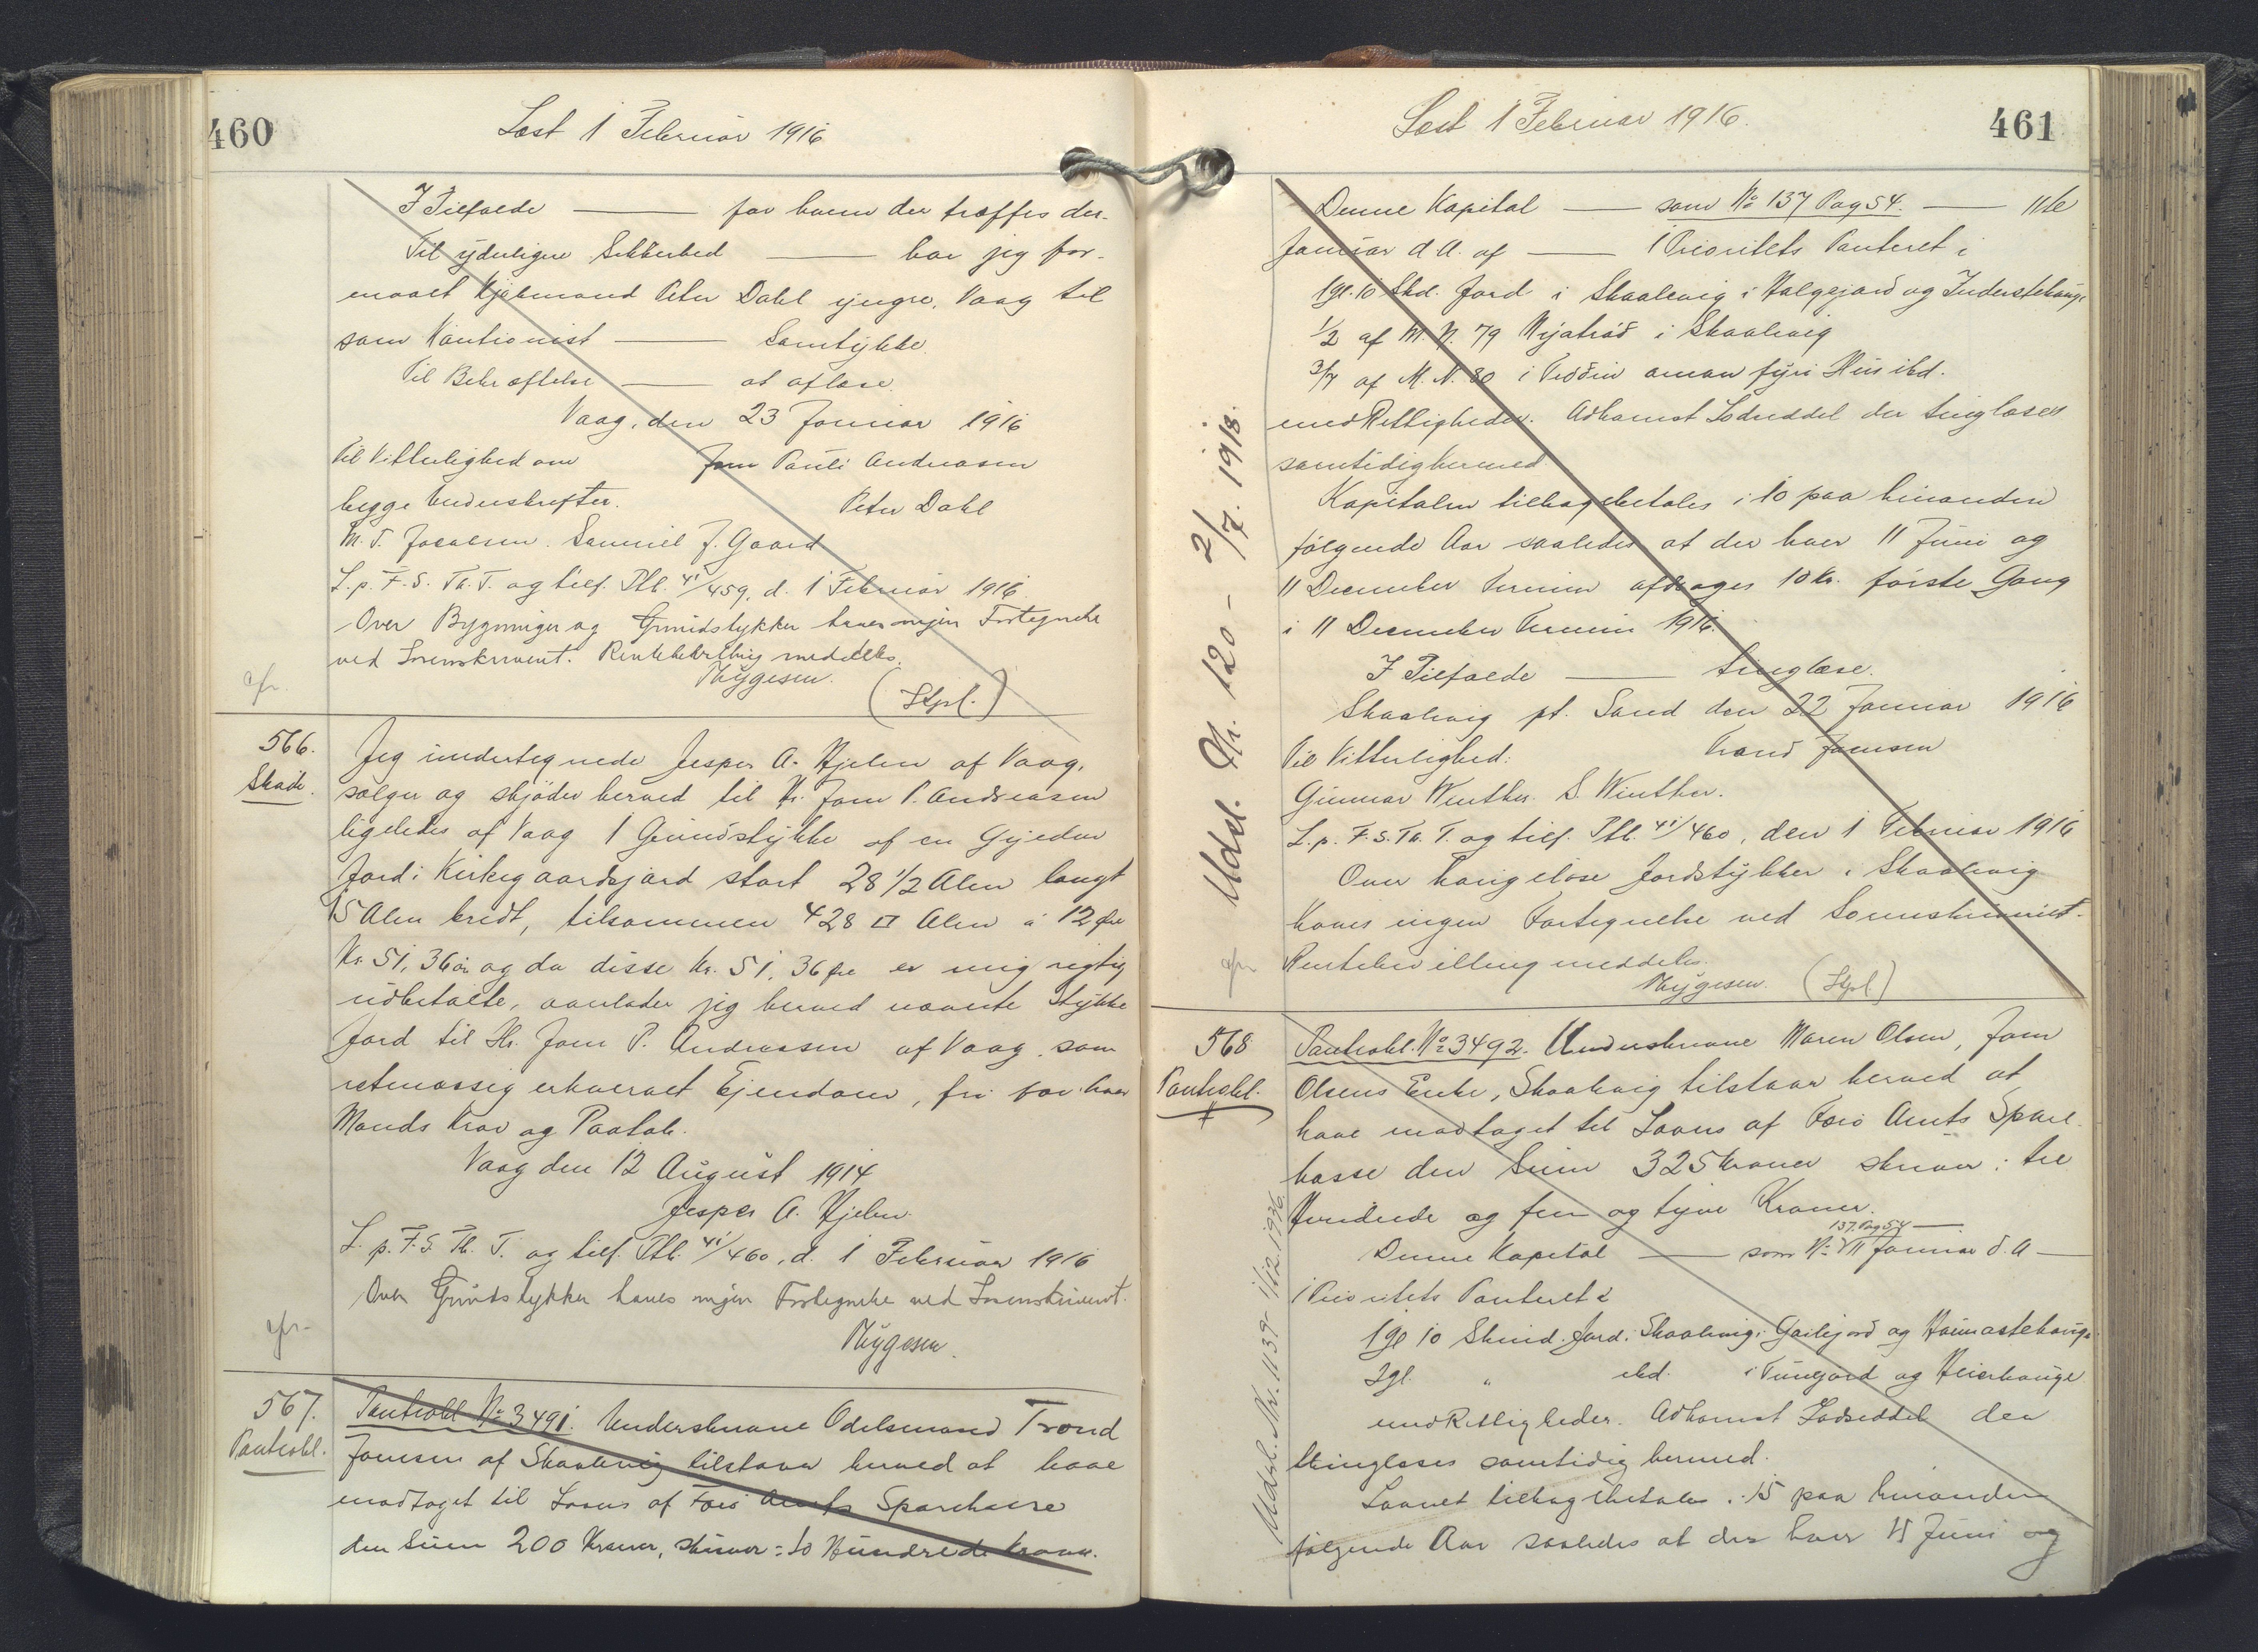 460
Læst 1 Februar 1916
I Tilfælde ——— for hvem der træffes der-
Til yderligere Sikkerhed ——— har jeg for-
maaet Kjøbmand Peter Dahl yngre, Vaag til
som Kautionist ——— Samtykke.
Til Bekræftelse ——— at aflæse.
Vaag, den 23 Januar 1916
Til Vitterlighed om Joen Pauli Andreasen
begge Underskrifter. Peter Dahl
M. S. Jacobsen. Samuel J. Gaard
L. p. F. S. Th. T. og tilf. Ptb. 41/459, d. 1 Februar 1916.
Over Bygninger og Grundstykker haves ingen Fortegnelse
ved Sorenskriveriet. Rentebevilling meddeles.
Thygesen.
(Stpl.)
cfr.
566.
Skøde.
Jeg undertegnede Jesper A. Hjelm af Vaag,
sælger og skjøder herved til Hr. Joen P. Andreasen
ligeledes af Vaag 1 Grundstykke af en Gyeder
Jord i Kirkegaardsjørd stort 28 1/2 Alen langt
15 Alen bredt, tilsammen 428 □ Alen a 12 Øre
Kr. 51,36 ør og da disse Kr. 51,36 Øre er mig rigtig
udbetalte, overlader jeg herved nævnte Stykke
Jord til Hr. Joen P. Andreasen af Vaag som
retmæssig erhvervet Ejendom, fri for hver
Mands Krav og Paatale.
Vaag den 12 August 1914
Jesper A. Hjelm.
L. p. F. S. Th. T. og tilf. Ptb. 41/460, d. 1 Februar 1916
Over Grundstykker haves ingen Fortegnelse ved Sorenskriveriet.
Thygesen.
cfr.
567.
Pantobl.
Pantobl. No 3491. Underskrevne Odelsmand Trond
Joensen af Skaalevig tilstaar herved at have
modtaget til Laans af Færø Amts Sparekasse
den Sum 200 Kroner, skriver: to Hundrede Kroner.
461
Læst 1 Februar 1916.
Denne Kapital ——— som No 137 Pag 54. ——— 11te
Januar d A. af ——— 1 Prioritets Panteret i
1 gl. 10 Skd. Jord i Skaalevig i Halgejord og Inderstehauge
1/2 af M. N. 79 Nyatrød i Skaalevig
3/7 af M. N. 80 i Trøðin oman fyri Hús ibd.
med Rettigheder. Adkomst Lodseddel der tinglæses
samtidig hermed.
Kapitalen tilbagebetales i 10 paa hinanden
følgende Aar saaledes at der hver 11 Juni og
11 December Termin afdrages 10 Kr. første Gang
i 11 December Termin 1916.
I Tilfælde ——— tinglæse.
Skaalevig pt. Sand den 22 Januar 1916
Til Vitterlighed: Trond Joensen
Gunnar Winther. S. Winther.
L. p. F. S. Th. T. og tilf. Ptb. 41/460, den 1 Februar 1916
Over Jordstykker i Skaalevig
haves ingen Fortegnelse ved Sorenskriveriet.
Rentebevilling meddeles.
Thygesen. (Stpl.)
cfr
Udsl. Nr. 120 - 2/7. 1918.
568
Pantobl.
Pantobl. No 3492. Underskrevne Maren Olsen, Joen
Olsens Enke, Skaalevig tilstaar herved at
have modtaget til Laans af Færø Amts Spare-
kasse den Sum 325 Kroner skriver: tre
Hundrede og fem og tyve Kroner.
137. Pag 54 —
Denne Kapital ——— som No 11 Januar d. A —
1 Prioritets Panteret i
1 gl 10 Skind. Jord i Skaalevig i Gailejord og Haimastehauge
2 gl. " ibd. i Tungjord og Heierhauge
med Rettigheder. Adkomst Lodseddel der
tinglæses samtidig hermed.
Laanet tilbagebetales i 15 paa hinanden
følgende Aar saaledes at der hver 11 Juni og
Udsl. Nr. 1139 - 1/12. 1936.